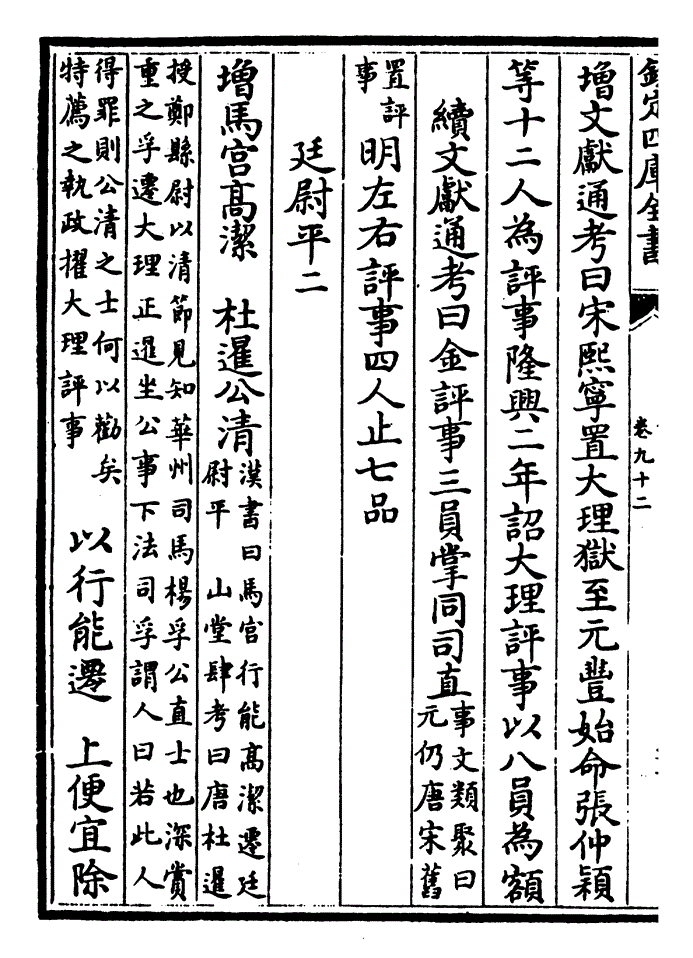 欽定四庫全書
卷九十二
增文獻通考曰宋熙寧置大理獄至元豐始命張仲穎
等十二人為評事隆興二年詔大理評事以八員為額
續文獻通考曰金評事三員掌同司直事文類聚曰元仍唐宋舊
置評事明左右評事四人止七品
廷尉平二
增馬宮高潔 杜暹公清漢書曰馬宮行能高潔遷廷尉平 山堂肆考曰唐杜暹
授鄭縣尉以清節見知華州司馬楊孚公直士也深賞
重之孚遷大理正暹坐公事下法司孚謂人曰若此人
得罪則公清之士何以勸矣
特薦之執政擢大理評事 以行能遷 上便宜除